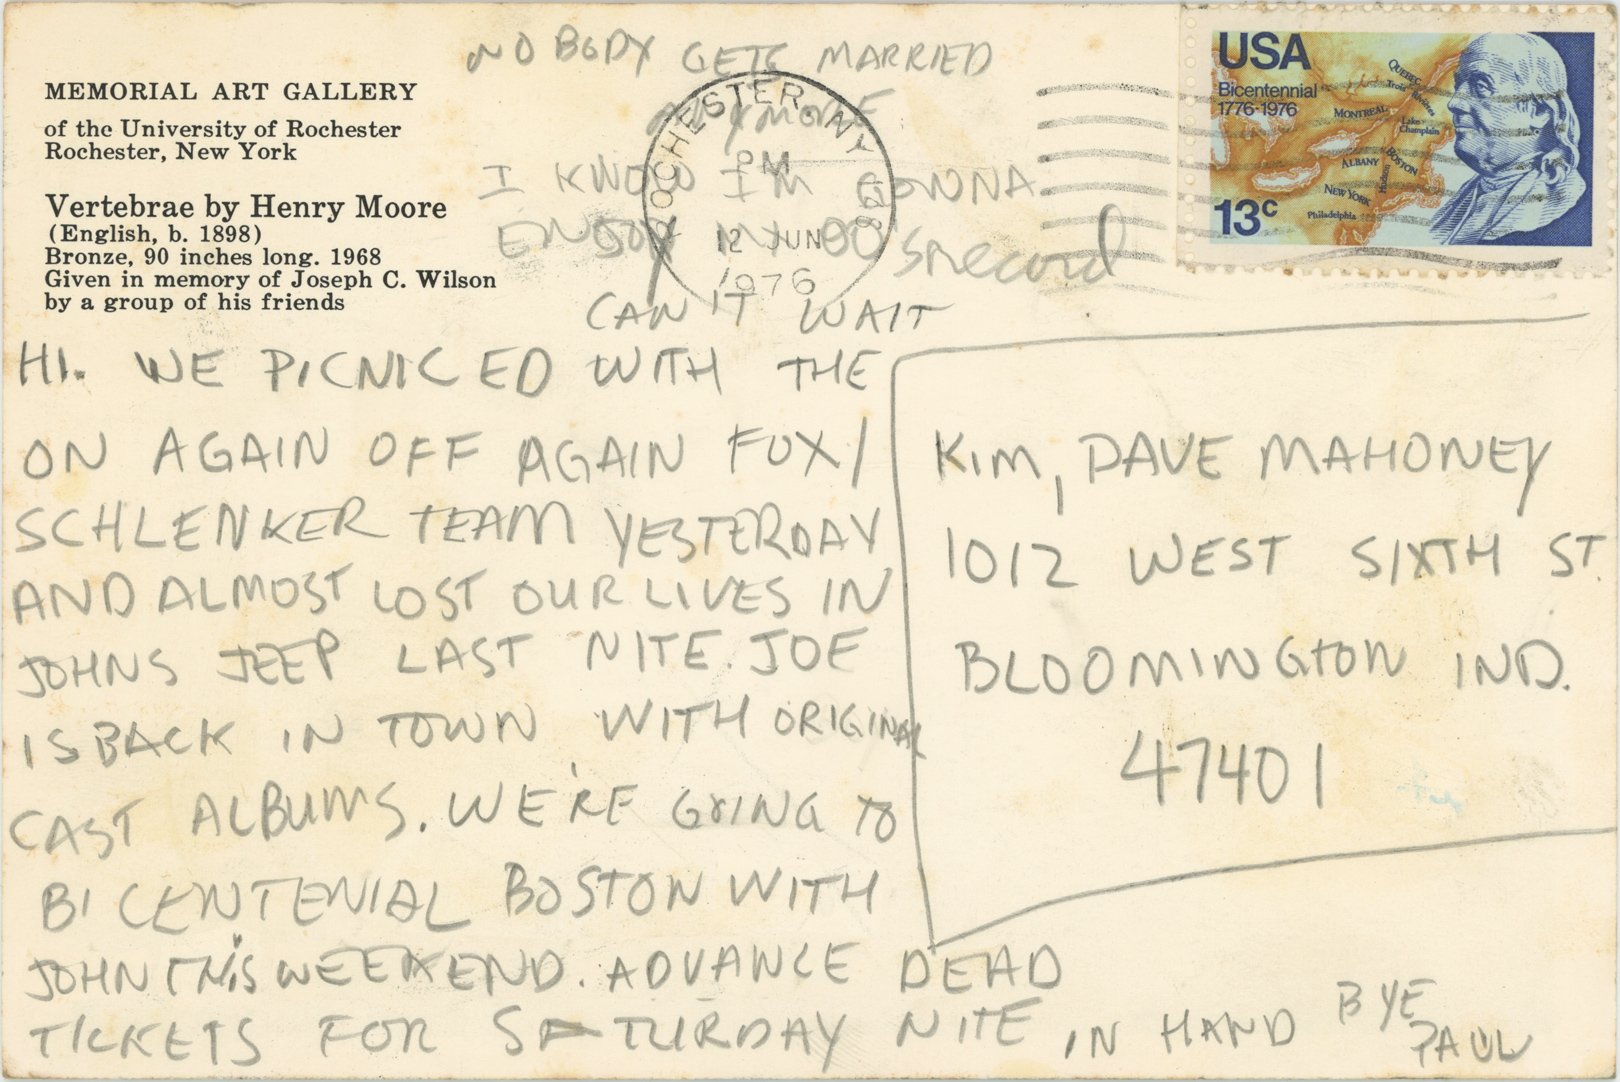 MEMORIAL ART GALLERY
of the University of Rochester
Rochester, New York
Vertebrae by Henry Moore
(English, b. 1898)
Bronze, 90 inches long. 1968
Given in memory of Joseph C. Wilson
by a group of his friends
NOBODY GETS MARRIED
ANYMORE
I KNOW I'M GONNA
ENJOY MY record
CAN'T WAIT
ROCHESTER, NY
PM
12 JUN
1976
USA
Bicentennial
1776-1976
QUEBEC
Trois Rivières
MONTREAL
Lake Champlain
ALBANY
BOSTON
Hudson
NEW YORK
Philadelphia
13c
HI. WE PICNICED WITH THE
ON AGAIN OFF AGAIN FOX/
SCHLENKER TEAM YESTERDAY
AND ALMOST LOST OUR LIVES IN
JOHNS JEEP LAST NITE. JOE
IS BACK IN TOWN WITH ORIGINAL
CAST ALBUMS. WE'RE GOING TO
BICENTENIAL BOSTON WITH
JOHN THIS WEEKEND. ADVANCE DEAD
TICKETS FOR SATURDAY NITE IN HAND BYE
PAUL
KIM, DAVE MAHONEY
1012 WEST SIXTH ST.
BLOOMINGTON IND.
47401